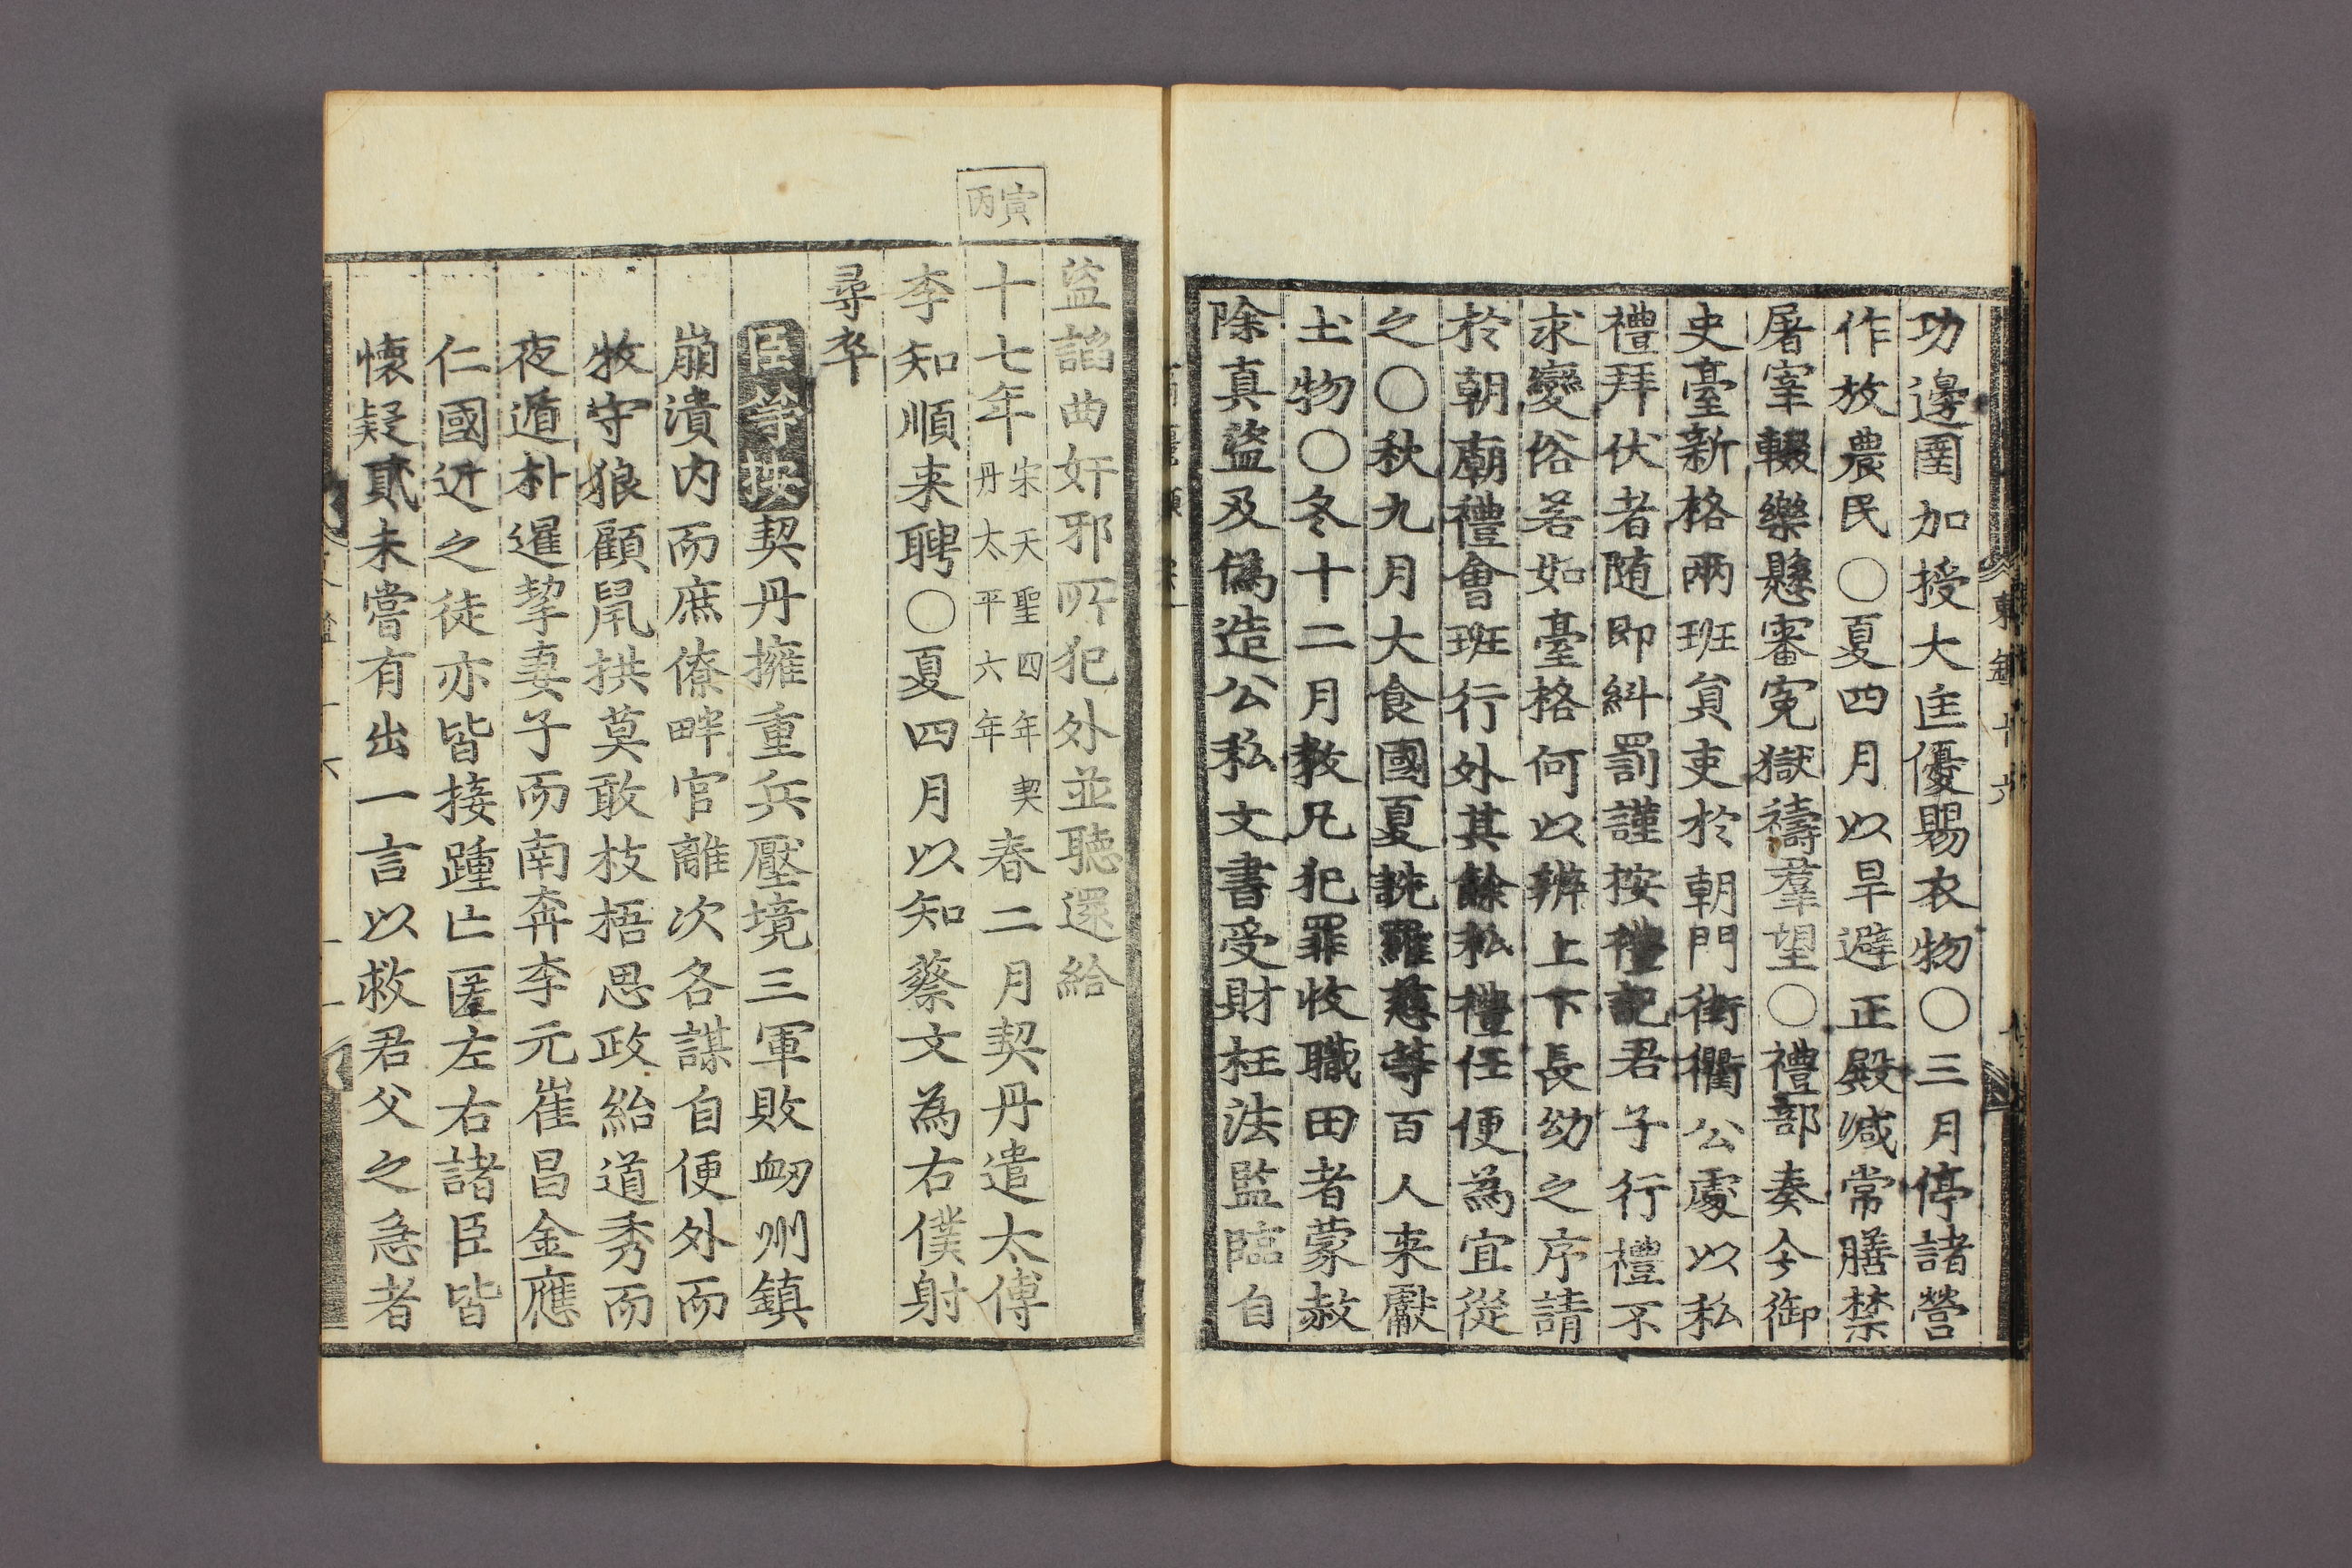 功邊圉加授大匡優賜衣物〇三月停諸營
作放農民〇夏四月以旱避正殿减常膳禁
屠宰輟樂懸審寃獄禱羣望〇禮部奏今御
史臺新格兩班貟吏於朝門街衢公處以私
禮拜伏者随即糾罰謹按禮記君子行禮不
求變俗若如臺格何以辨上下長幼之序請
於朝廟禮會班行外其餘私禮任便為宜從
之〇秋九月大食國夏詵羅慈等百人来獻
土物〇冬十二月教凡犯罪收職田者蒙赦
除真盜及偽造公私文書受財枉法監臨自
盜諂曲奸邪所犯外並聽還給
丙寅
十七年宋天聖四年契丹太平六年春二月契丹遣太傅
李知順来聘〇夏四月以知蔡文為右僕射
尋卒
臣等按契丹擁重兵壓境三軍敗衂州鎮
崩潰内而庶僚畔官離次各謀自便外而
牧守狼顧鼠拱莫敢枝梧思政紿道秀而
夜遁朴暹挈妻子而南奔李元崔昌金應
仁國近之徒亦皆接踵亡匿左右諸臣皆
懐疑貳未嘗有出一言以救君父之急者